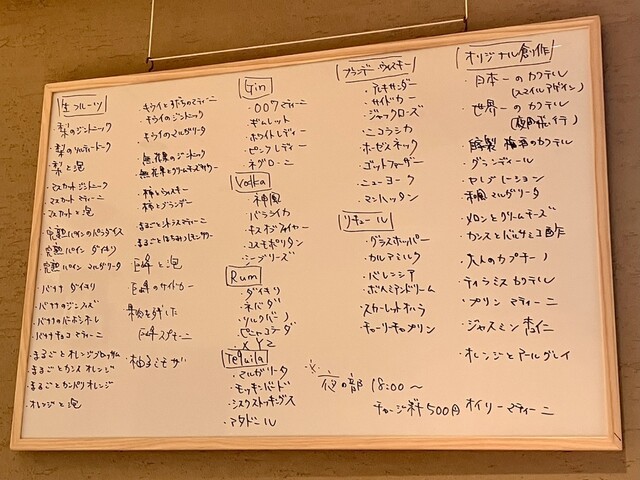 生フルーツ
・梨のジントニック
・梨のソルティードーク
・梨と泡
・マスカットジントニック
・マスカットマティーニ
・マスカットと泡
・完熟パインのパラダイス
・完熟パイン ダイキリ
・完熟パイン マルガリータ
・バナナ ダイキリ
・バナナのジンフィズ
・バナナのバーボンネーレ
・バナナチョコマティーニ
・まるごとオレンジブロッサム
・まるごとカシスオレンジ
・まるごとカンパリオレンジ
・オレンジと泡
・キウイとすだちのマティーニ
・キウイのジントニック
・キウイのマルガリータ
・無花果のジントニック
・無花果とクリームチーズ
・柿とウィスキー
・柿とブランデー
・まるごとシトラスマティーニ
・まるごとはちみつレモンサワー
・巨峰と泡
・巨峰のサイドカー
・巨峰スプモーニ
・柚子ミモザ
Gin
・007マティーニ
・ギムレット
・ホワイトレディー
・ピンクレディー
・ネグローニ
Vodka
・神風
・バラライカ
・キスオブファイヤー
・コスモポリタン
・シーブリーズ
Rum
・ダイキリ
・ネバダ
・ソルクバーノ
・ピニャコラーダ
・XYZ
Tequila
・マルガリータ
・モッキンバード
・シルクストッキングス
・マタドール
ブランデー・ウィスキー
・アレキサンダー
・サイドカー
・ジャックローズ
・ニコラシカ
・ホーセズネック
・ゴットファーザー
・ニューヨーク
・マンハッタン
リキュール
・グラスホッパー
・カルアミルク
・バレンシア
・ボヘミアンドリーム
・スカーレットオハラ
・チャーリーチャップリン
オリジナル創作
・日本一のカクテル
(スマイルアゲイン)
・世界一のカクテル
(夜間飛行)
・グランディール
・和風マルガリータ
・メロンとクリームチーズ
・カシスとバルサミコ酢
・大人のカプチーノ
・ティラミスカクテル
・プリン マティーニ
・ジャスミン杏仁
・オレンジとアールグレイ
・オイリーマティーニ
※夜の部 18:00〜
チャージ料 500円